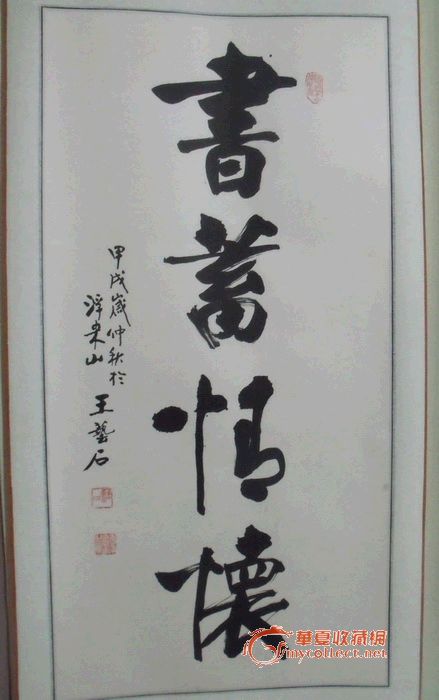 書蓄情懷
甲戌歲仲秋於
浮来山
王藝石
華夏收藏網
mycollect.net